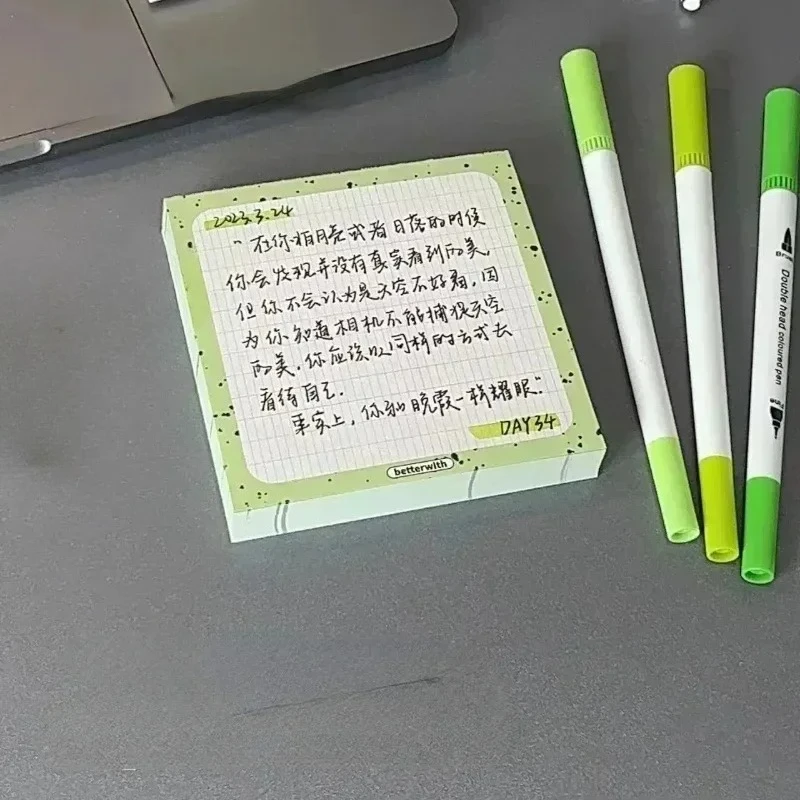 2023.3.24
"在你拍月亮或者日落的时候
你会发现并没有真实看到的美,
但你不会认为是天空不好看,因
为你知道相机不能捕捉天空
的美.你应该以同样的方式去
看待自己.
事实上,你和晚霞一样耀眼."
DAY34
betterwith
Double head coloured pen
Fine